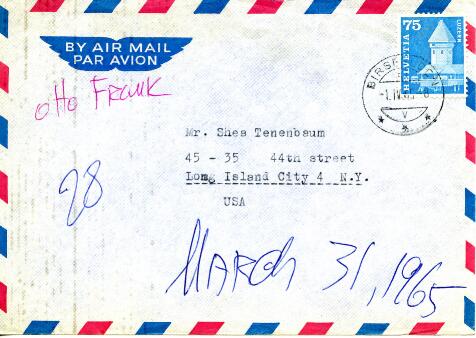 75
HELVETIA
LUZERN
BY AIR MAIL
PAR AVION
Otto Frank
Mr. Shea Tenenbaum
45 - 35 44th street
Long Island City 4 N.Y.
USA
28
MARCH 31, 1965